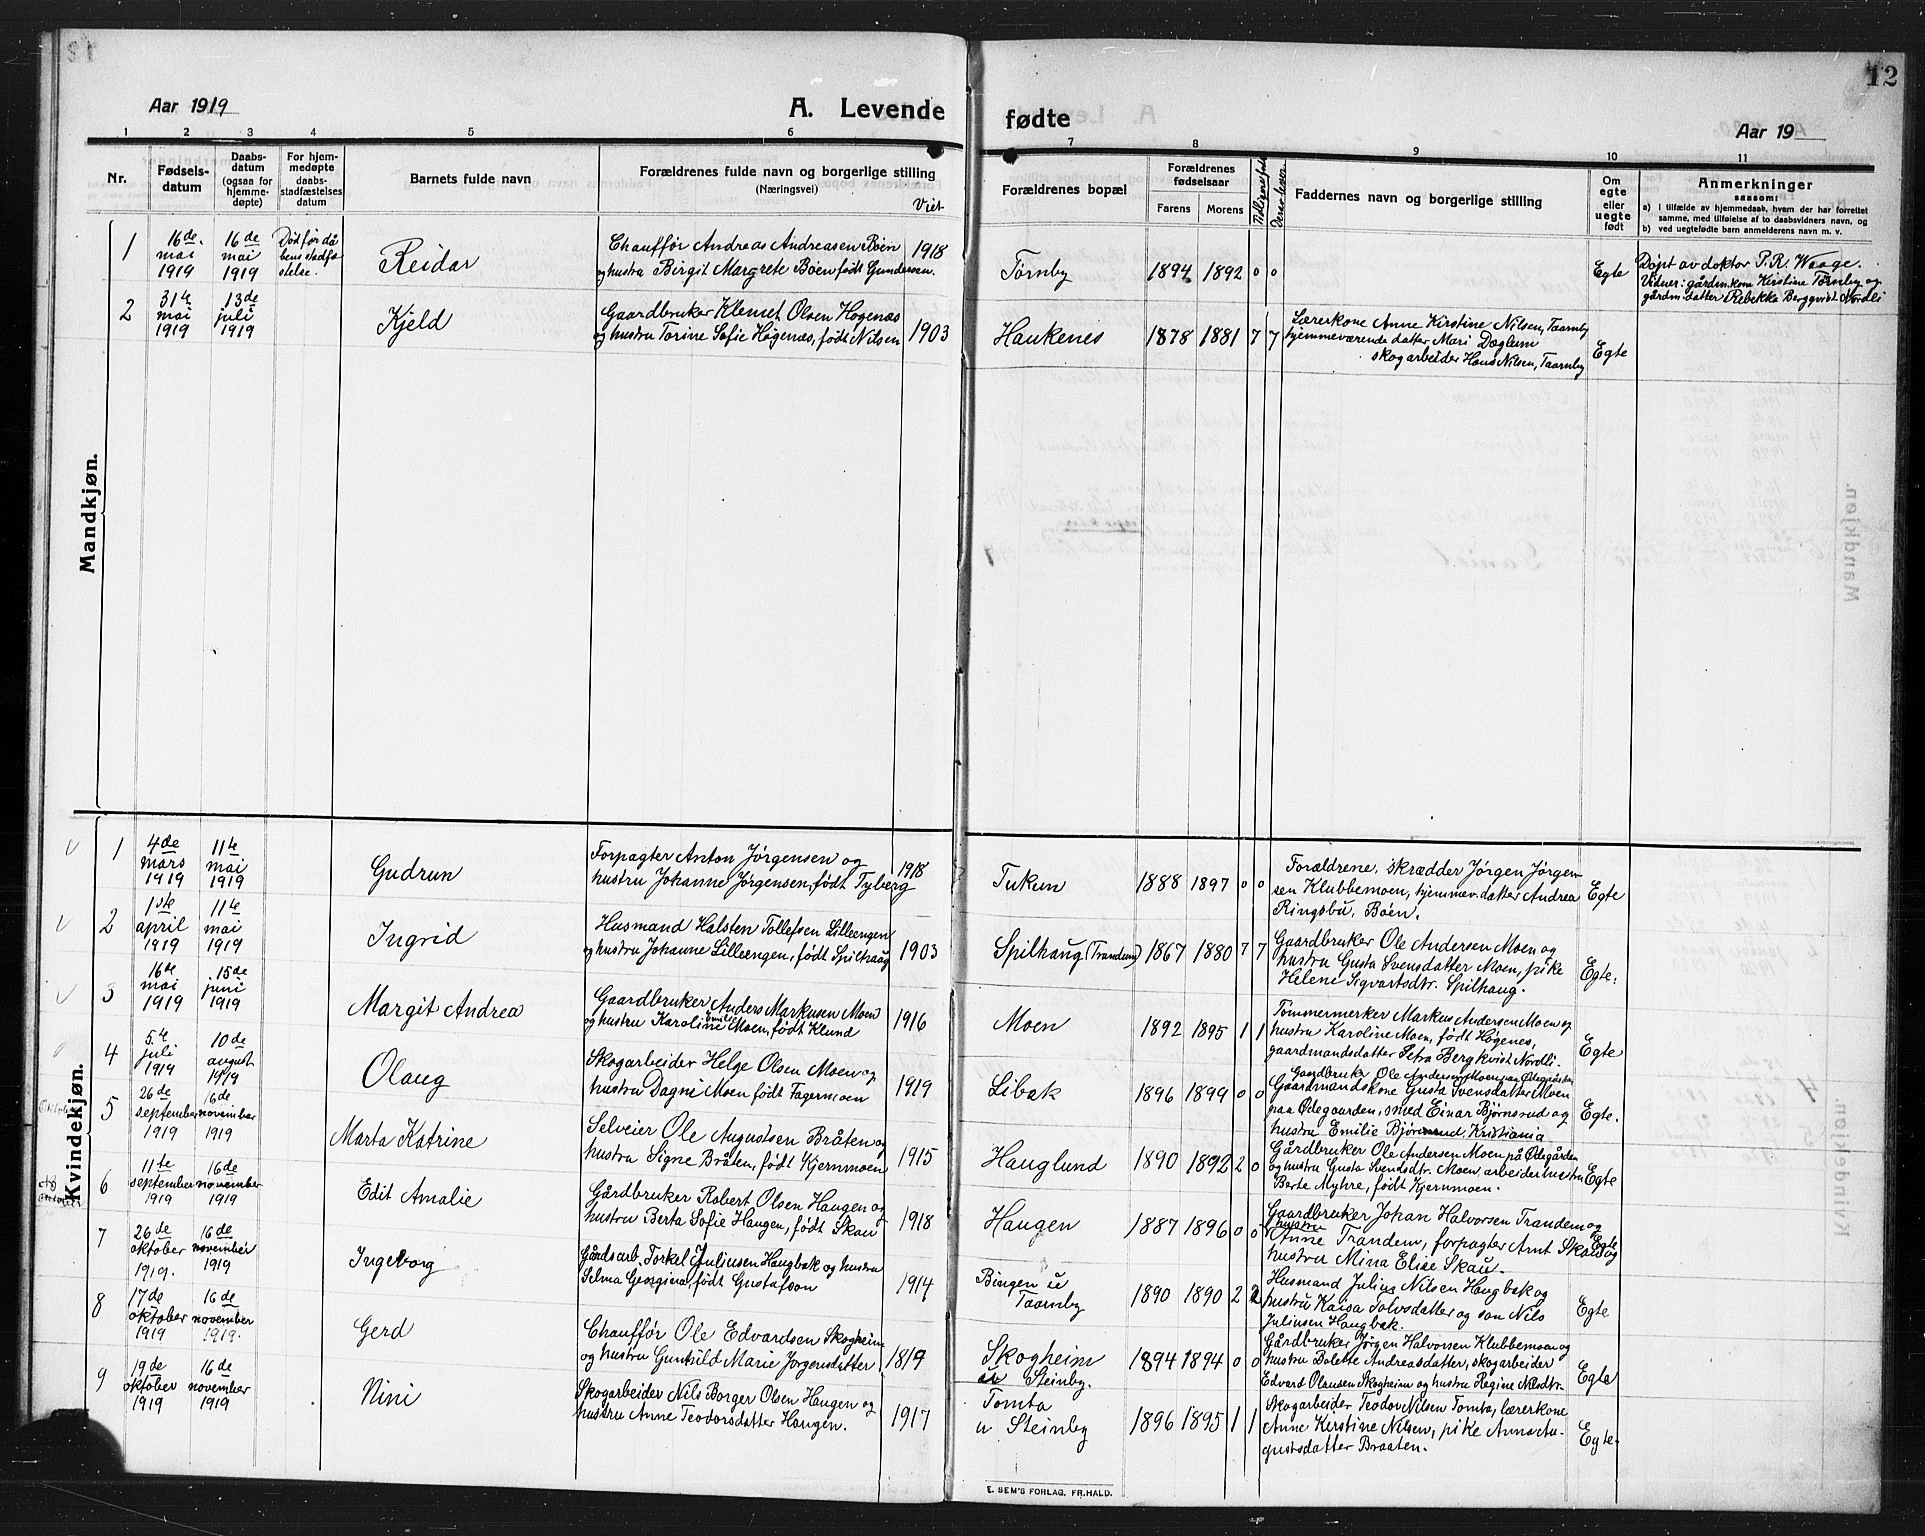 12
Aar 1919
A. Levende
fødte
Aar 19
1 2 3 4 5 6 7 8 9 10 11
Nr.
Fødsels-
datum
Daabs-
datum
(ogsaa for
hjemme-
døpte)
For hjem-
medøpte
daabs-
stadfæstelses
datum
Barnets fulde navn
Forældrenes fulde navn og borgerlige stilling
(Næringsvei)
Viet
Forældrenes bopæl
Forældrenes
fødselsaar
Farens Morens
Faddernes navn og borgerlige stilling
Om
egte
eller
uegte
født
Anmerkninger
saasom:
a) i tilfælde av hjemmedaab, hvem der har forrettet
samme, med tilføielse af to daabsvidners navn, og
b) ved uegtefødte barn anmelderens navn m. v.
Mandkjøn.
1
16de
mai
1919
16de
mai
1919
Død før då
bens stadfæ
stelse.
Reidar
Chauffør Andreas Andreasen Bøen
og hustru Birgit Margrete Bøen født Gundersen.
1918
Tørnby
1894 1892 0 0
Egte
Døpt av doktor P. R. Waage.
Vidner: gården.kone Kirstine Tørnby og
gårdm.datter Rebekka Bergqvist Nordli
2
31te
mai
1919
13de
juli
1919
Kjeld
Gaardbruker Klemet Olsen Høgenæs
og hustru Torine Sofie Høgenæs, født Nilsen
1903
Haukenes
1878 1881 7 7
Lærerkone Anne Kirstine Nilsen, Taarnby
hjemmeværende datter Mari Døglum
skogarbeider Hans Nilsen, Taarnby
Egte
Kvindekjøn.
1
4de
mars
1919
11te
mai
1919
Gudrun
Forpagter Anton Jørgensen og
hustru Johanne Jørgensen, født Tyberg
1918
Tukun
1888 1897 0 0
Forældrene, skrædder Jørgen Jørgen-
sen Klubbemoen, hjemmev. datter Andrea
Ringsbu, Bøen.
Egte
2
1ste
april
1919
11te
mai
1919
Ingrid
Husmand Halsten Tollefsen Lilleengen
og hustru Johanne Lilleengen, født Spilhaug
1903
Spilhaug (Trandem)
1867 1880 7 7
Gaardbruker Ole Andersen Moen og
hustru Gusta Svensdatter Moen, pike
Helene Sigvartsdtr. Spilhaug.
Egte.
3
16de
mai
1919
15de
juni
1919
Margit Andrea
Gaardbruker Anders Markusen Moen
og hustru Karoline Emilie Moen, født Klund
1916
Moen
1892 1895 1 1
Tømmermerker Markus Andersen Moen og
hustru Karoline Moen, født Høgenes,
gaardmandsdatter Petra Bergkvist Nordli.
Egte
4
5te
juli
1919
10de
august
1919
Olaug
Skogarbeider Helge Olsen Moen og
hustru Dagni Moen født Fagermoen
1919
Libak
1896 1899 0 0
Gaardbruker Ole Andersen Moen paa Ødegaarden
Gaardmandskone Gusta Svensdatter Moen
paa Ødegaarden, smed Einar Bjørnsrud og
hustru Emilie Bjørnsrud, Kristiania
Egte.
5
26de
september
1919
16de
november
1919
Marta Katrine
Selveier Ole Augustsen Bråten og
hustru Signe Bråten, født Kjernmoen
1915
Hauglund
1890 1892 2 0
Gårdbruker Ole Andersen Moen på Ødegården
og hustru Gusta Svendsdtr. Moen, arbeiderhustru
Berte Myhre, født Kjernmoen.
Egte
6
11te
september
1919
16de
november
1919
Edit Amalie
Gårdbruker Robert Olsen Haugen og
hustru Berta Sofie Haugen, født Skau
1918
Haugen
1887 1896 0 0
Gaardbruker Johan Halvorsen Trandem og
hustru
Anne Trandem, forpagter Arnt Skau og
hustru Mina Elise Skau.
Egte
7
26de
oktober
1919.
16de
november
1919
Ingeborg
Gårdsarb. Torkel Juliusen Haugbak og hustru
Selma Georgina, født Gustafson
1914
Bingen u
Taarnby
1890 1890 2 2
Husmand Julius Nilsen Haugbak og
hustru Kaisa Tolvsdatter og søn Nils
Juliusen Haugbak.
Egte
8
17de
oktober
1919
16de
november
1919.
Gerd
Chauffør Ole Edvardsen Skogheim
og hustru Gunhild Marie Jørgensdatter,
1819
Skogheim
u Steinby.
1894 1894 0 0
Gårdbruker Jørgen Halvorsen Klubbemoen og
hustru Bolette Andreasdatter, skogarbeider
Edvard Olausen Skogheim og hustru Regine Nilsdtr.
Egte
9
19de
oktober
1919
16de
november
1919
Nini
Skogarbeider Nils Borger Olsen Haugen og
hustru Anne Teodorsdatter Haugen.
1917
Tomta
u Steinby
1896 1895 1 1
Skogarbeider Teodor Nilsen Tomta, lærerkone
Anne Kirstine Nilsen, pike Anna Au-
gustsdatter Braaten.
Egte.
E. SEM'S FORLAG, FR.HALD.